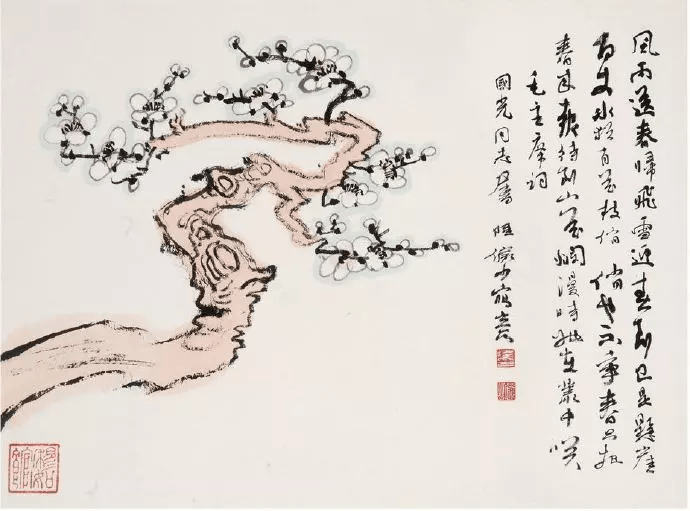 風雨送春歸飛雪迎春到已是懸崖
百丈冰猶有花枝俏俏也不爭春只把
春來報待到山花爛漫時她在叢中笑
毛主席詞
國光同志屬 陸儼少寫意